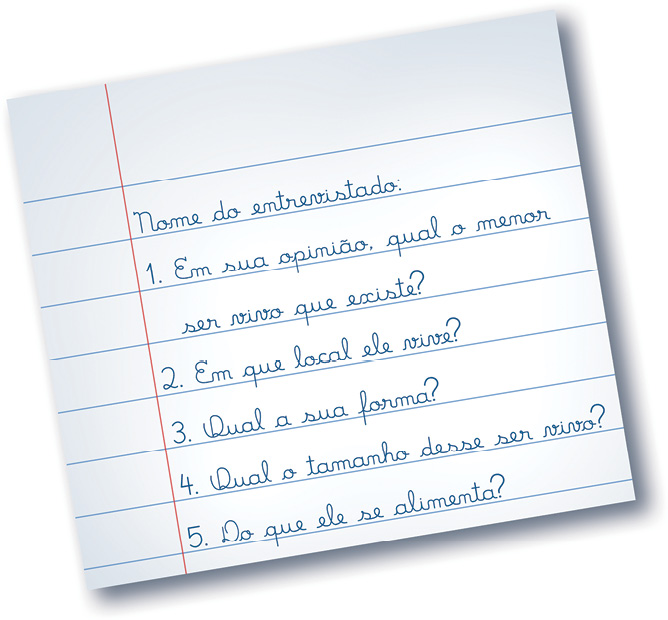 Nome do entrevistado:
1. Em sua opinião, qual o menor
ser vivo que existe?
2. Em que local ele vive?
3. Qual a sua forma?
4. Qual o tamanho desse ser vivo?
5. Do que ele se alimenta?